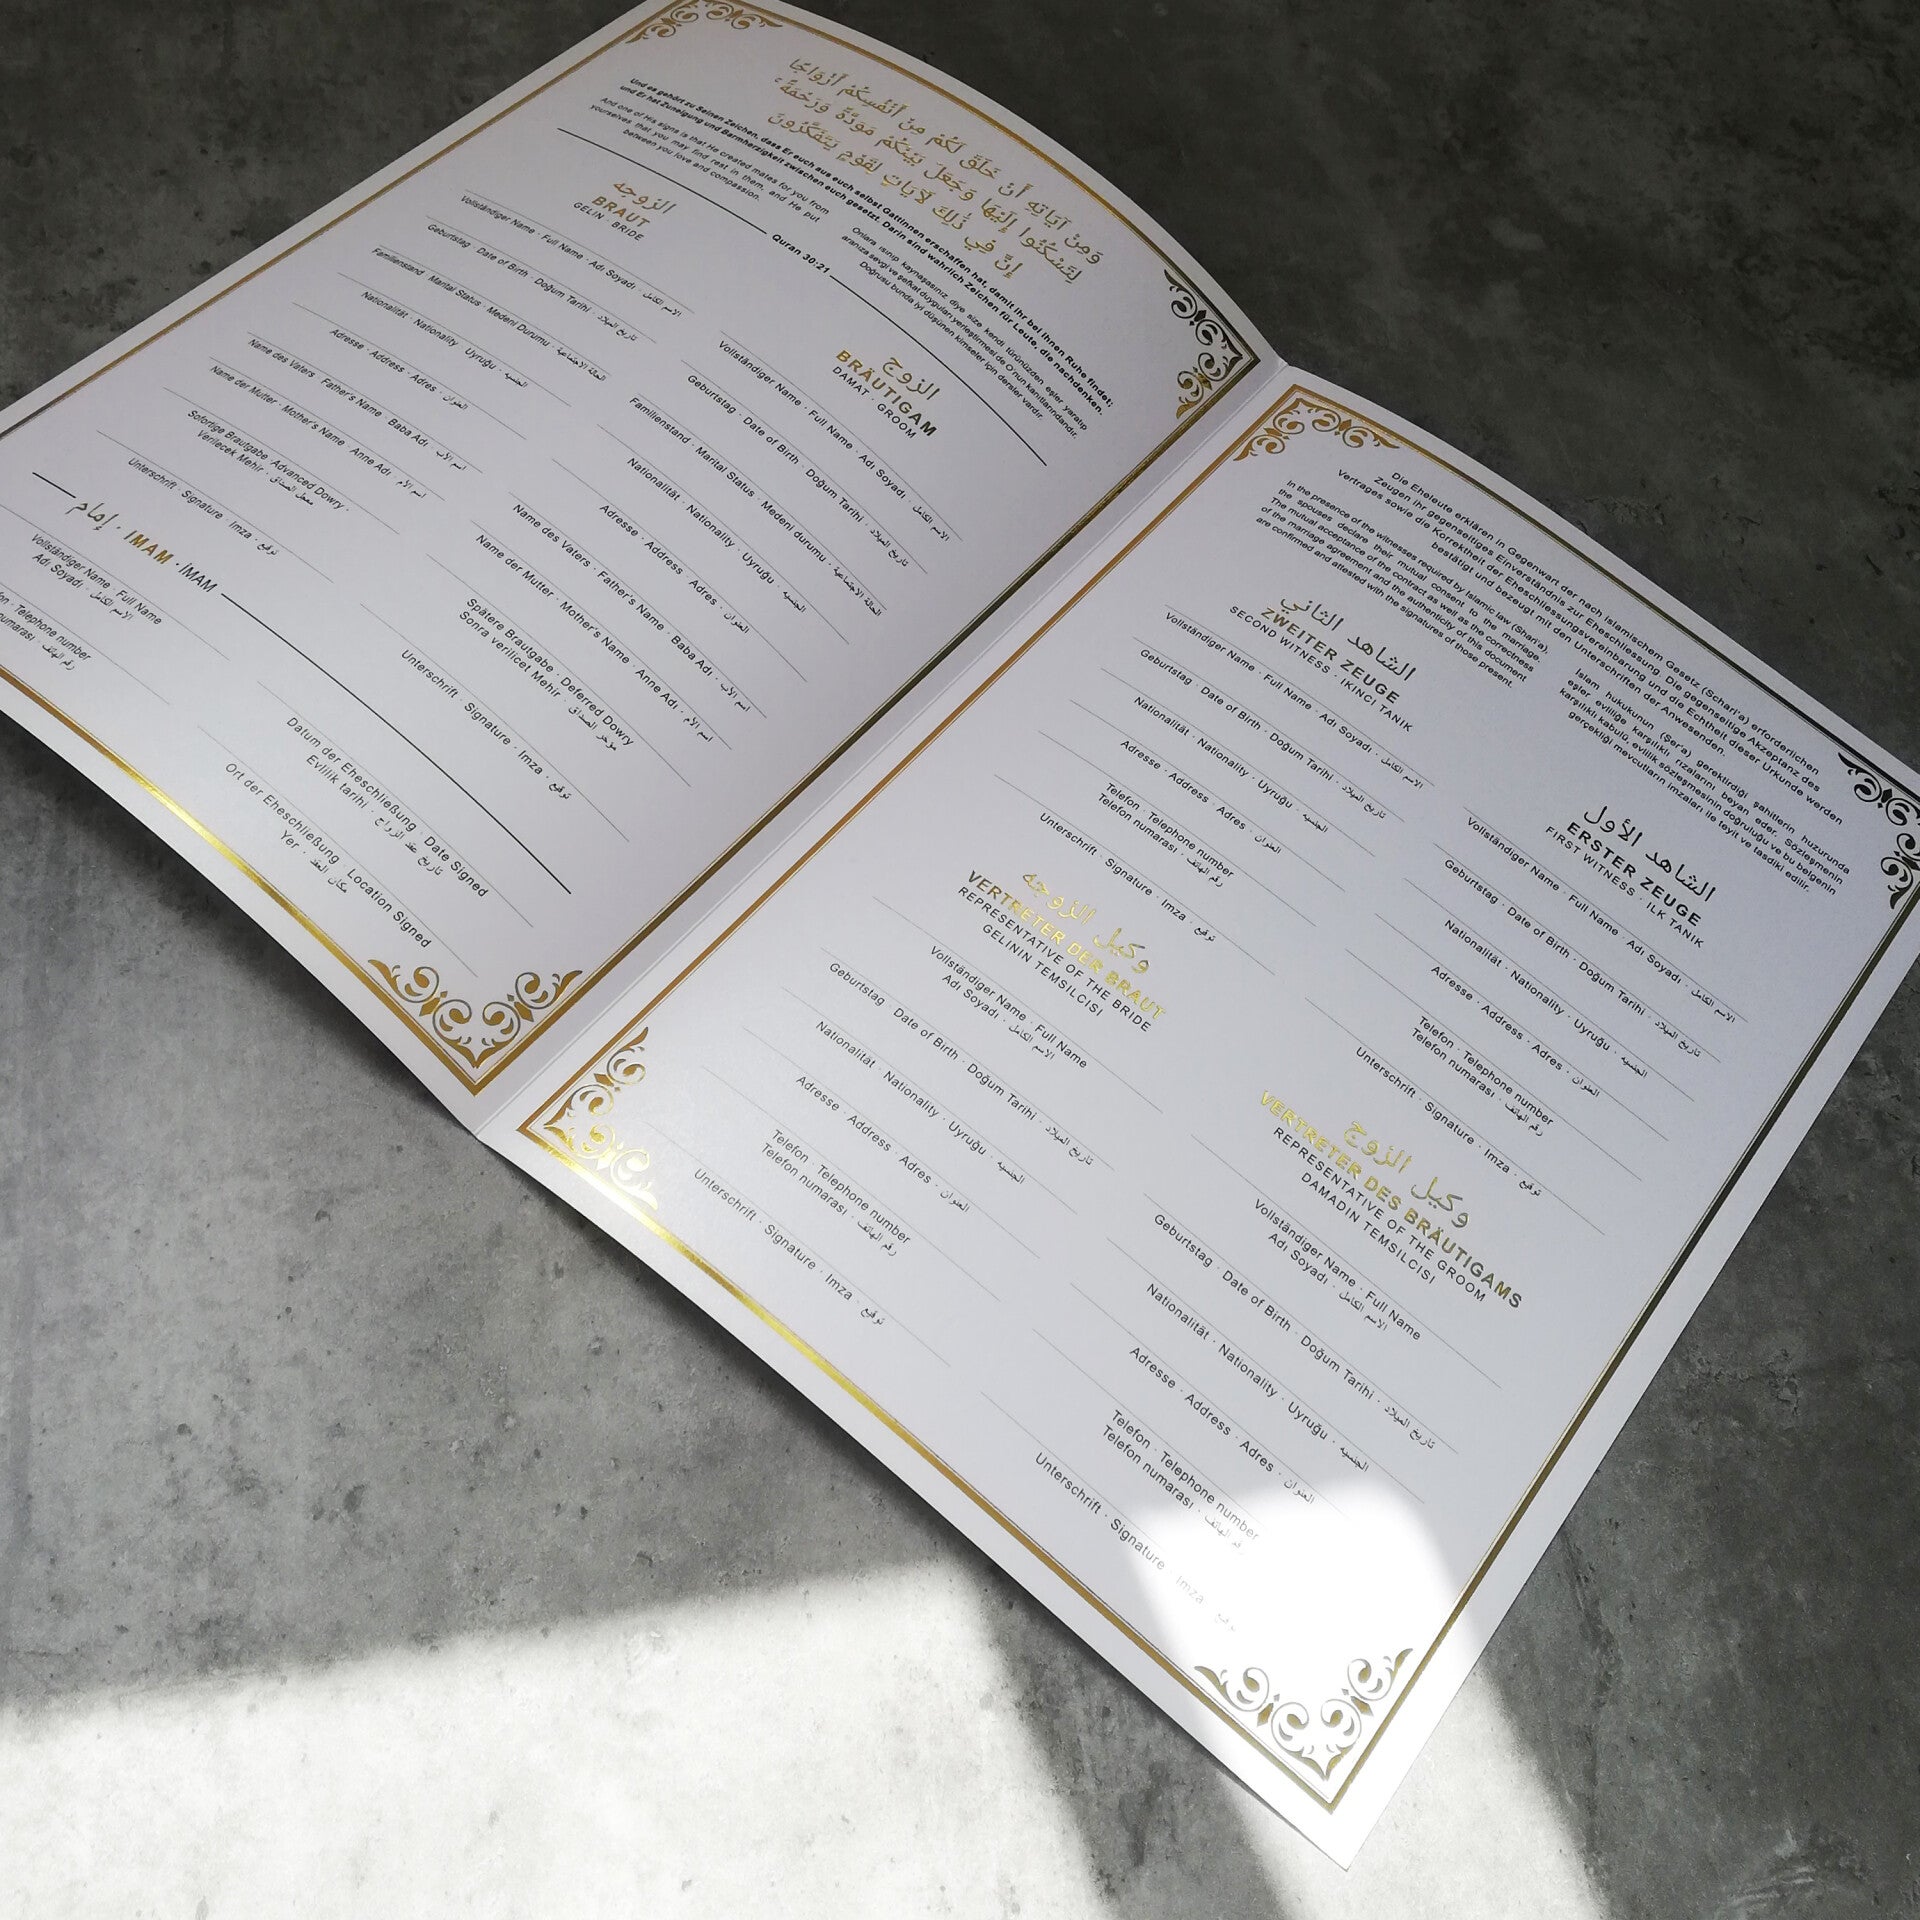 وَمِنْ آيَاتِهِ أَنْ خَلَقَ لَكُمْ مِنْ أَنْفُسِكُمْ أَزْوَاجًا
لِتَسْكُنُوا إِلَيْهَا وَجَعَلَ بَيْنَكُمْ مَوَدَّةً وَرَحْمَةً
إِنَّ فِي ذَٰلِكَ لَآيَاتٍ لِقَوْمٍ يَتَفَكَّرُونَ
Und es gehört zu Seinen Zeichen, dass Er euch aus euch selbst Gattinnen erschaffen hat, damit ihr bei ihnen Ruhe findet;
und Er hat Zuneigung und Barmherzigkeit zwischen euch gesetzt. Darin sind wahrlich Zeichen für Leute, die nachdenken.
And one of His signs is that He created mates for you from
yourselves that you may find rest in them, and He put
between you love and compassion.
Onlara ısınıp kaynaşasınız diye size kendi türünüzden eşler yaratıp
aranıza sevgi ve şefkat duyguları yerleştirmesi de O'nun kanıtlarındandır.
Doğrusu bunda iyi düşünen kimseler için dersler vardır.
Quran 30:21
الزوجه
BRAUT
GELIN · BRIDE
Vollständiger Name · Full Name · Adı Soyadı · الاسم الكامل
Geburtstag · Date of Birth · Doğum Tarihi · تاريخ الميلاد
Familienstand · Marital Status · Medeni Durumu · الحالة الاجتماعية
Nationalität · Nationality · Uyruğu · الجنسيه
Adresse · Address · Adres · العنوان
Name des Vaters · Father's Name · Baba Adı · اسم الأب
Name der Mutter · Mother's Name · Anne Adı · اسم الأم
Sofortige Brautgabe · Advanced Dowry ·
Verilecek Mehir · معجل الصداق
Unterschrift · Signature · Imza · توقيع
الزوج
BRÄUTIGAM
DAMAT · GROOM
Vollständiger Name · Full Name · Adı Soyadı · الاسم الكامل
Geburtstag · Date of Birth · Doğum Tarihi · تاريخ الميلاد
Familienstand · Marital Status · Medeni durumu · الحالة الاجتماعية
Nationalität · Nationality · Uyruğu · الجنسيه
Adresse · Address · Adres · العنوان
Name des Vaters · Father's Name · Baba Adı · اسم الأب
Name der Mutter · Mother's Name · Anne Adı · اسم الأم
Spätere Brautgabe · Deferred Dowry
Sonra verilicet Mehir · مؤخر الصداق
Unterschrift · Signature · Imza · توقيع
إمام · IMAM · IMAM
Vollständiger Name · Full Name
Adı Soyadı · الاسم الكامل
Telephone number
رقم الهاتف
Datum der Eheschließung · Date Signed
Evlilik tarihi · تاريخ عقد الزواج
Ort der Eheschließung · Location Signed
Yer · مكان العقد
Die Eheleute erklären in Gegenwart der nach islamischem Gesetz (Schari'a) erforderlichen
Zeugen ihr gegenseitiges Einverständnis zur Eheschliessung. Die gegenseitige Akzeptanz des
Vertrages sowie die Korrektheit der Eheschliessungsvereinbarung und die Echtheit dieser Urkunde werden
bestätigt und bezeugt mit den Unterschriften der Anwesenden.
In the presence of the witnesses required by Islamic law (Shari'a),
the spouses declare their mutual consent to the marriage.
The mutual acceptance of the contract as well as the correctness
of the marriage agreement and the authenticity of this document
are confirmed and attested with the signatures of those present.
Islam hukukunun (Şer'a) gerektirdiği şahitlerin huzurunda
eşler evliliğe karşılıklı rızalarını beyan eder. Sözleşmenin
karşılıklı kabulü, evlilik sözleşmesinin doğruluğu ve bu belgenin
gerçekliği mevcutların imzaları ile teyit ve tasdiki edilir.
الشاهد الثاني
ZWEITER ZEUGE
SECOND WITNESS · IKINCI TANIK
Vollständiger Name · Full Name · Adı Soyadı · الاسم الكامل
Geburtstag · Date of Birth · Doğum Tarihi · تاريخ الميلاد
Nationalität · Nationality · Uyruğu · الجنسيه
Adresse · Address · Adres · العنوان
Telefon · Telephone number
Telefon numarası · رقم الهاتف
Unterschrift · Signature · Imza · توقيع
الشاهد الأول
ERSTER ZEUGE
FIRST WITNESS · ILK TANIK
Vollständiger Name · Full Name · Adı Soyadı · الاسم الكامل
Geburtstag · Date of Birth · Doğum Tarihi · تاريخ الميلاد
Nationalität · Nationality · Uyruğu · الجنسيه
Adresse · Address · Adres · العنوان
Telefon · Telephone number
Telefon numarası · رقم الهاتف
Unterschrift · Signature · Imza · توقيع
وكيل الزوجه
VERTRETER DER BRAUT
REPRESENTATIVE OF THE BRIDE
GELININ TEMSILCISI
Vollständiger Name · Full Name
Adı Soyadı · الاسم الكامل
Geburtstag · Date of Birth · Doğum Tarihi · تاريخ الميلاد
Nationalität · Nationality · Uyruğu · الجنسيه
Adresse · Address · Adres · العنوان
Telefon · Telephone number
Telefon numarası · رقم الهاتف
Unterschrift · Signature · Imza · توقيع
وكيل الزوج
VERTRETER DES BRÄUTIGAMS
REPRESENTATIVE OF THE GROOM
DAMADIN TEMSILCISI
Vollständiger Name · Full Name
Adı Soyadı · الاسم الكامل
Geburtstag · Date of Birth · Doğum Tarihi · تاريخ الميلاد
Nationalität · Nationality · Uyruğu · الجنسيه
Adresse · Address · Adres · العنوان
Telefon · Telephone number
Telefon numarası · رقم الهاتف
Unterschrift · Signature · Imza · توقيع